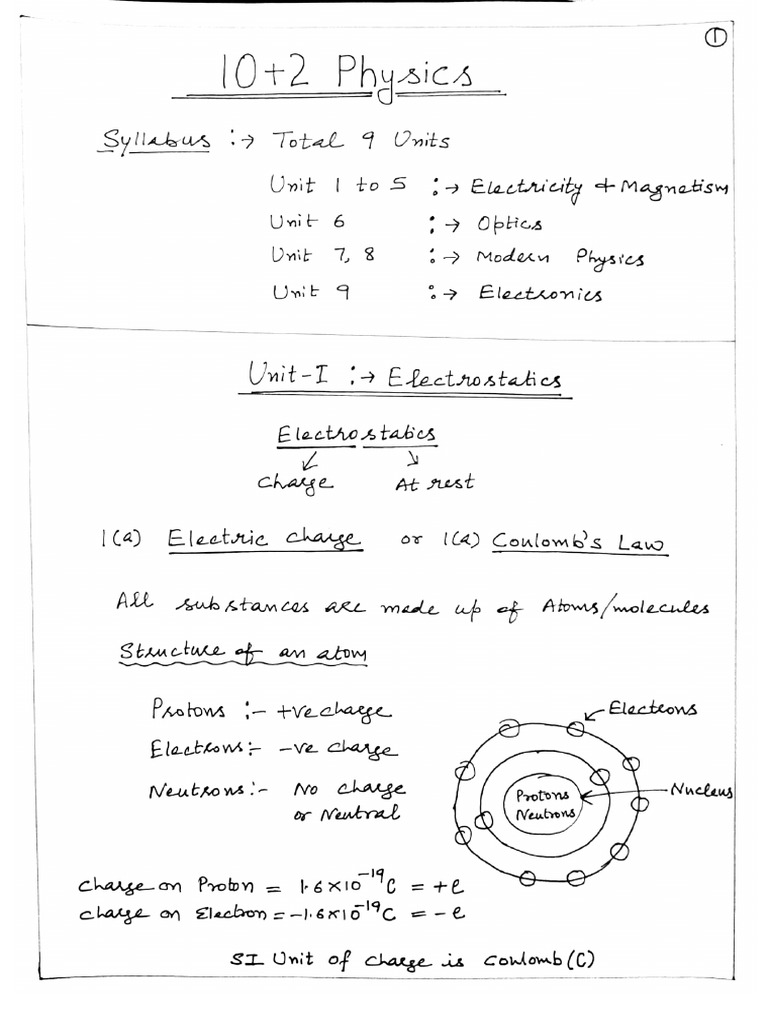 ①
10+2 Physics
Syllabus :→ Total 9 Units
Unit 1 to 5 :→ Electricity & Magnetism
Unit 6 :→ Optics
Unit 7, 8 :→ Modern Physics
Unit 9 :→ Electronics
Unit-I :→ Electrostatics
Electrostatics
Charge At rest
1(a) Electric charge or 1(a) Coulomb's Law
All substances are made up of Atoms/molecules
Structure of an atom
Protons :- +ve charge
Electrons:- -ve charge
Neutrons:- No charge
or Neutral
Electrons
Nucleus
Protons
Neutrons
Charge on Proton = 1.6×10⁻¹⁹C = +e
Charge on Electron = -1.6×10⁻¹⁹C = -e
SI Unit of charge is Coulomb(C)